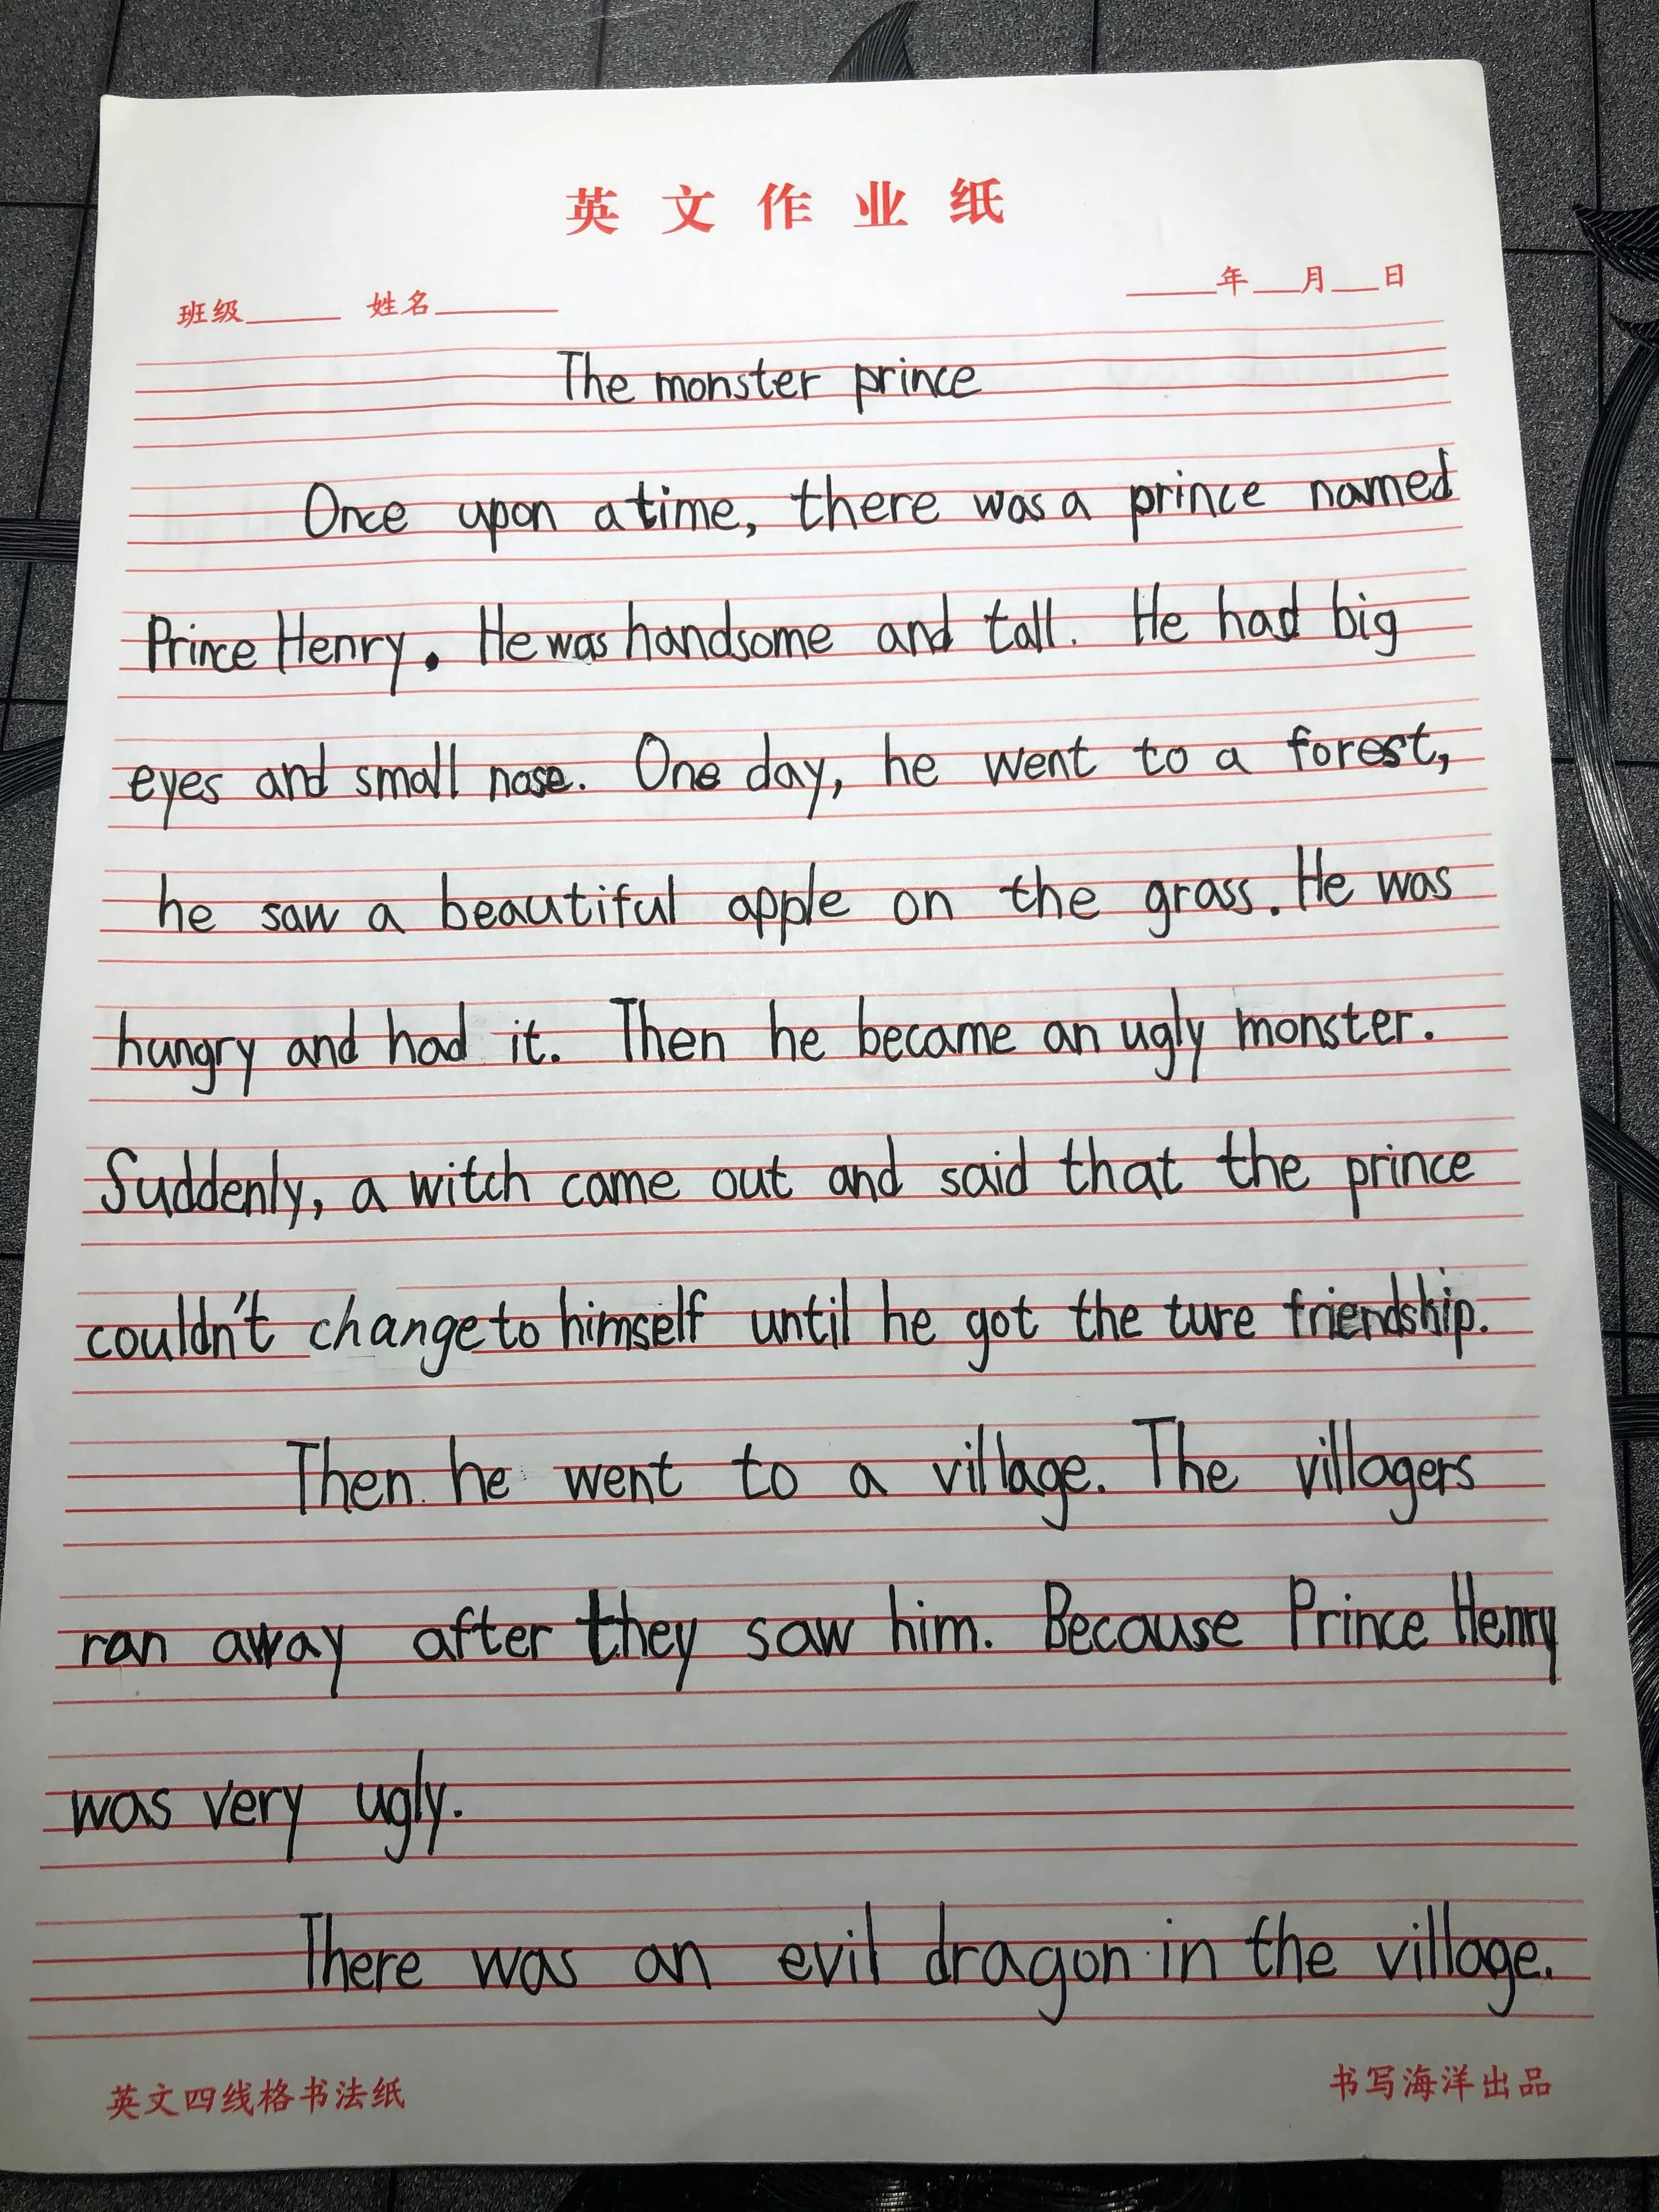 英文作业纸
班级 姓名 年 月 日
The monster prince
Once upon a time, there was a prince named
Prince Henry. He was handsome and tall. He had big
eyes and small nose. One day, he went to a forest,
he saw a beautiful apple on the grass. He was
hungry and had it. Then he became an ugly monster.
Suddenly, a witch came out and said that the prince
couldn't change to himself until he got the ture friendship.
Then he went to a village. The villagers
ran away after they saw him. Because Prince Henry
was very ugly.
There was an evil dragon in the village.
英文四线格书法纸 书写海洋出品